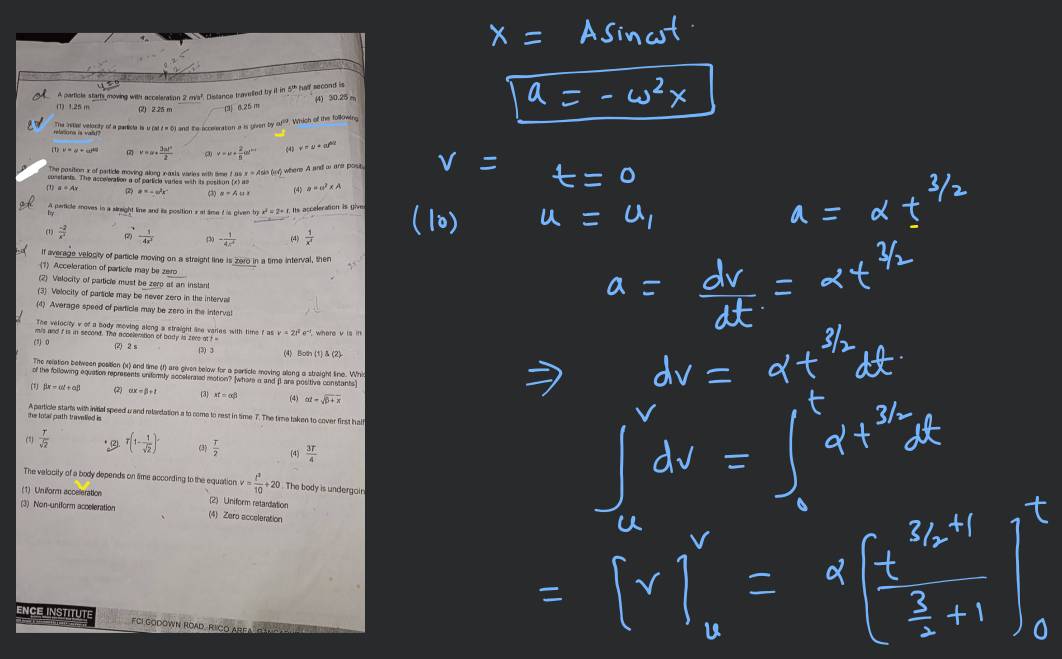 A particle starts moving with acceleration 2 m/s². Distance travelled by it in 5th half second is
(1) 1.25 m (2) 2.25 m (3) 6.25 m (4) 30.25 m
The initial velocity of a particle is u (at t = 0) and the acceleration a is given by αt^3/2. Which of the following
relations is valid?
(1) v = u + αt^3/2 (2) v = u + 3αt³/2 (3) v = u + 2/5 αt^5/2 (4) v = u + αt^5/2
The position x of particle moving along x-axis varies with time t as x = A sin (ωt) where A and ω are
constants. The acceleration a of particle varies with its position (x) as
(1) a = Ax (2) a = – ω²x (3) a = A ω x (4) a = ω² x A
A particle moves in a straight line and its position x at time t is given by x² = 2 + t. Its acceleration is
by
(1) –2/x³ (2) – 1/4x³ (3) – 1/4x² (4) 1/x²
If average velocity of particle moving on a straight line is zero in a time interval, then
(1) Acceleration of particle may be zero
(2) Velocity of particle must be zero at an instant
(3) Velocity of particle may be never zero in the interval
(4) Average speed of particle may be zero in the interval
The velocity v of a body moving along a straight line varies with time t as v = 2t² e^–t, where v is in
m/s and t is in second. The acceleration of body is zero at t =
(1) 0 (2) 2 s (3) 3 (4) Both (1) & (2)
The relation between position (x) and time (t) are given below for a particle moving along a straight line.
of the following equation represents uniformly accelerated motion? [where α and β are positive constants]
(1) βx = αt + αβ (2) αx = β + t (3) xt = αβ (4) αt = √β + x
A particle starts with initial speed u and retardation a to come to rest in time T. The time taken to cover first half
the total path travelled is
(1) T/√2 (2) T(1 – 1/√2) (3) T/2 (4) 3T/4
The velocity of a body depends on time according to the equation v = t²/10 + 20. The body is
(1) Uniform acceleration (2) Uniform retardation
(3) Non-uniform acceleration (4) Zero acceleration
ENCE INSTITUTE
FCI GODOWN ROAD, RIICO AREA
x = A sin ωt
a = – ω²x
v = t = 0
(10) u = u, a = αt^3/2
a = dv/dt = αt^3/2
⇒ dv = αt^3/2 dt
∫_u^v dv = ∫_0^t αt^3/2 dt
= [v]_u^v = α[t^(3/2+1)/(3/2+1)]_0^t